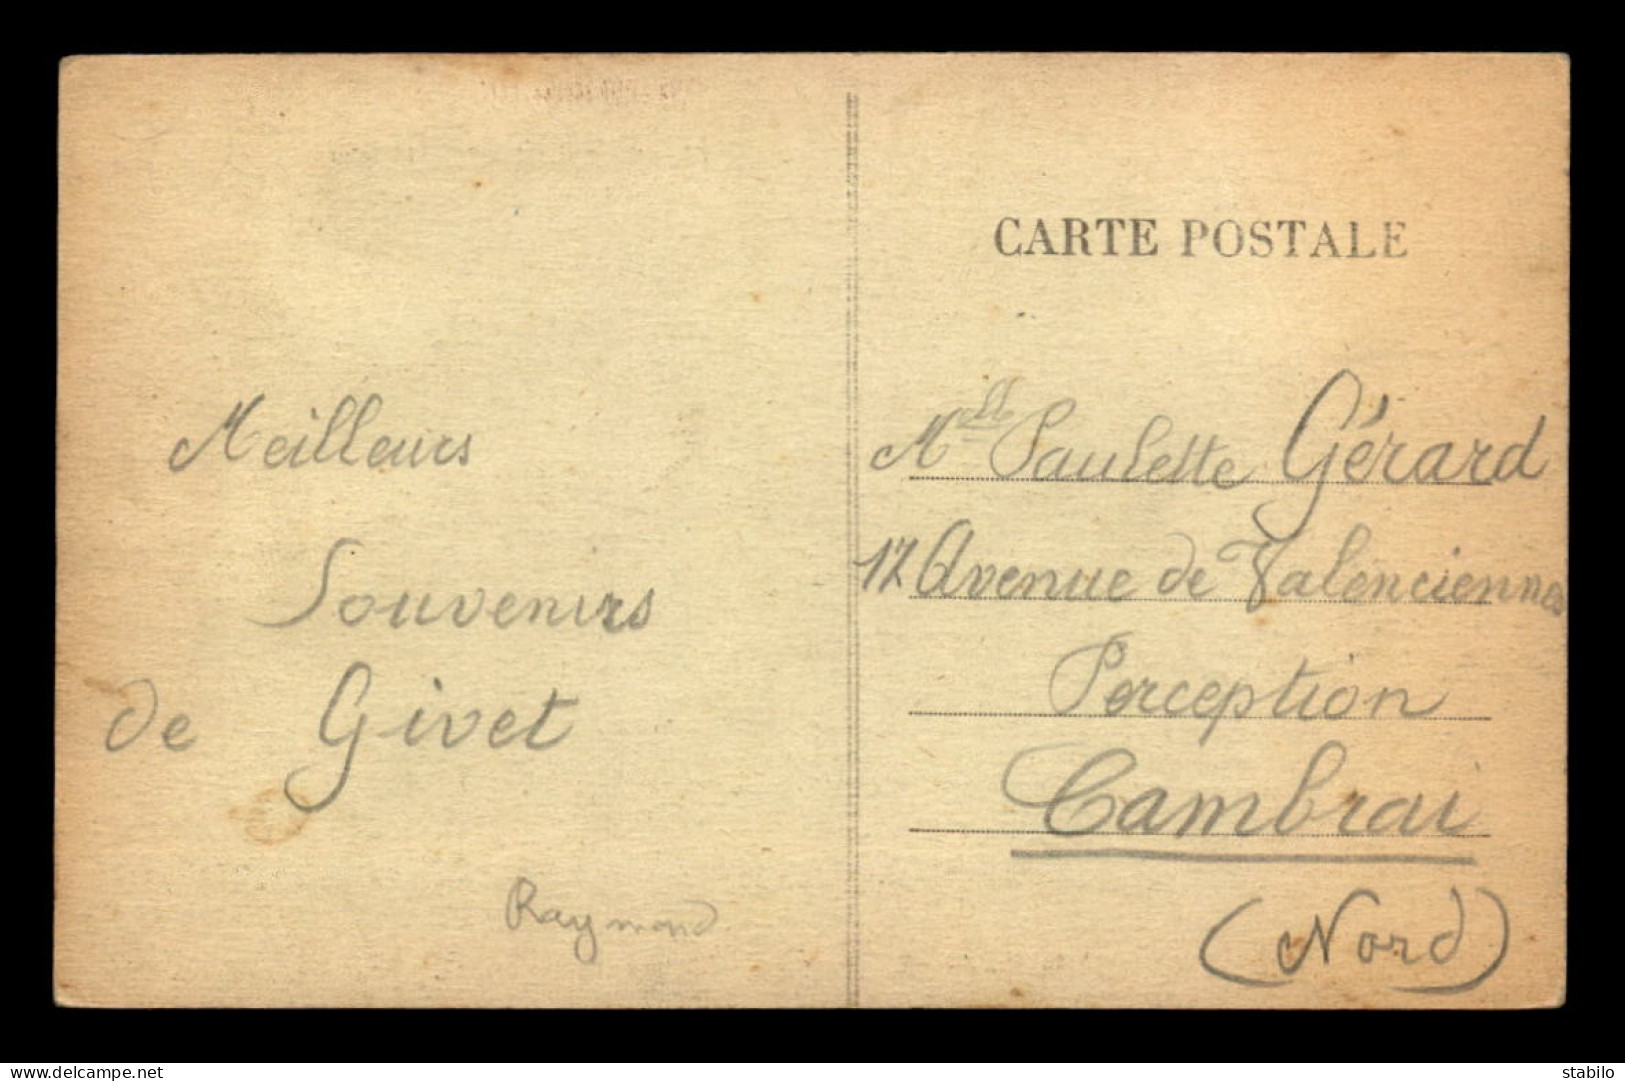 Meilleurs
Souvenirs
de Givet
Raymond
CARTE POSTALE
Mlle Paulette Gérard
17 Avenue de Valenciennes
Perception
Cambrai
(Nord)
www.delcampe.net
stabilo